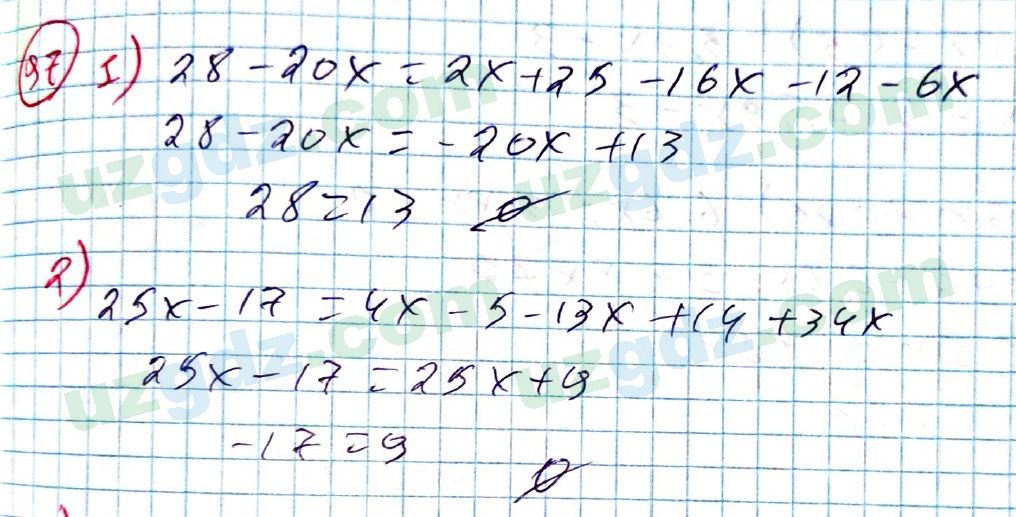 97 1) 28 - 20x = 2x + 25 - 16x - 12 - 6x
28 - 20x = -20x + 13
28 = 13 ∅
2) 25x - 17 = 4x - 5 - 13x + 14 + 34x
25x - 17 = 25x + 9
-17 = 9 ∅
uzgdz.com
uzgdz.com
uzgdz.com
uzgdz.com